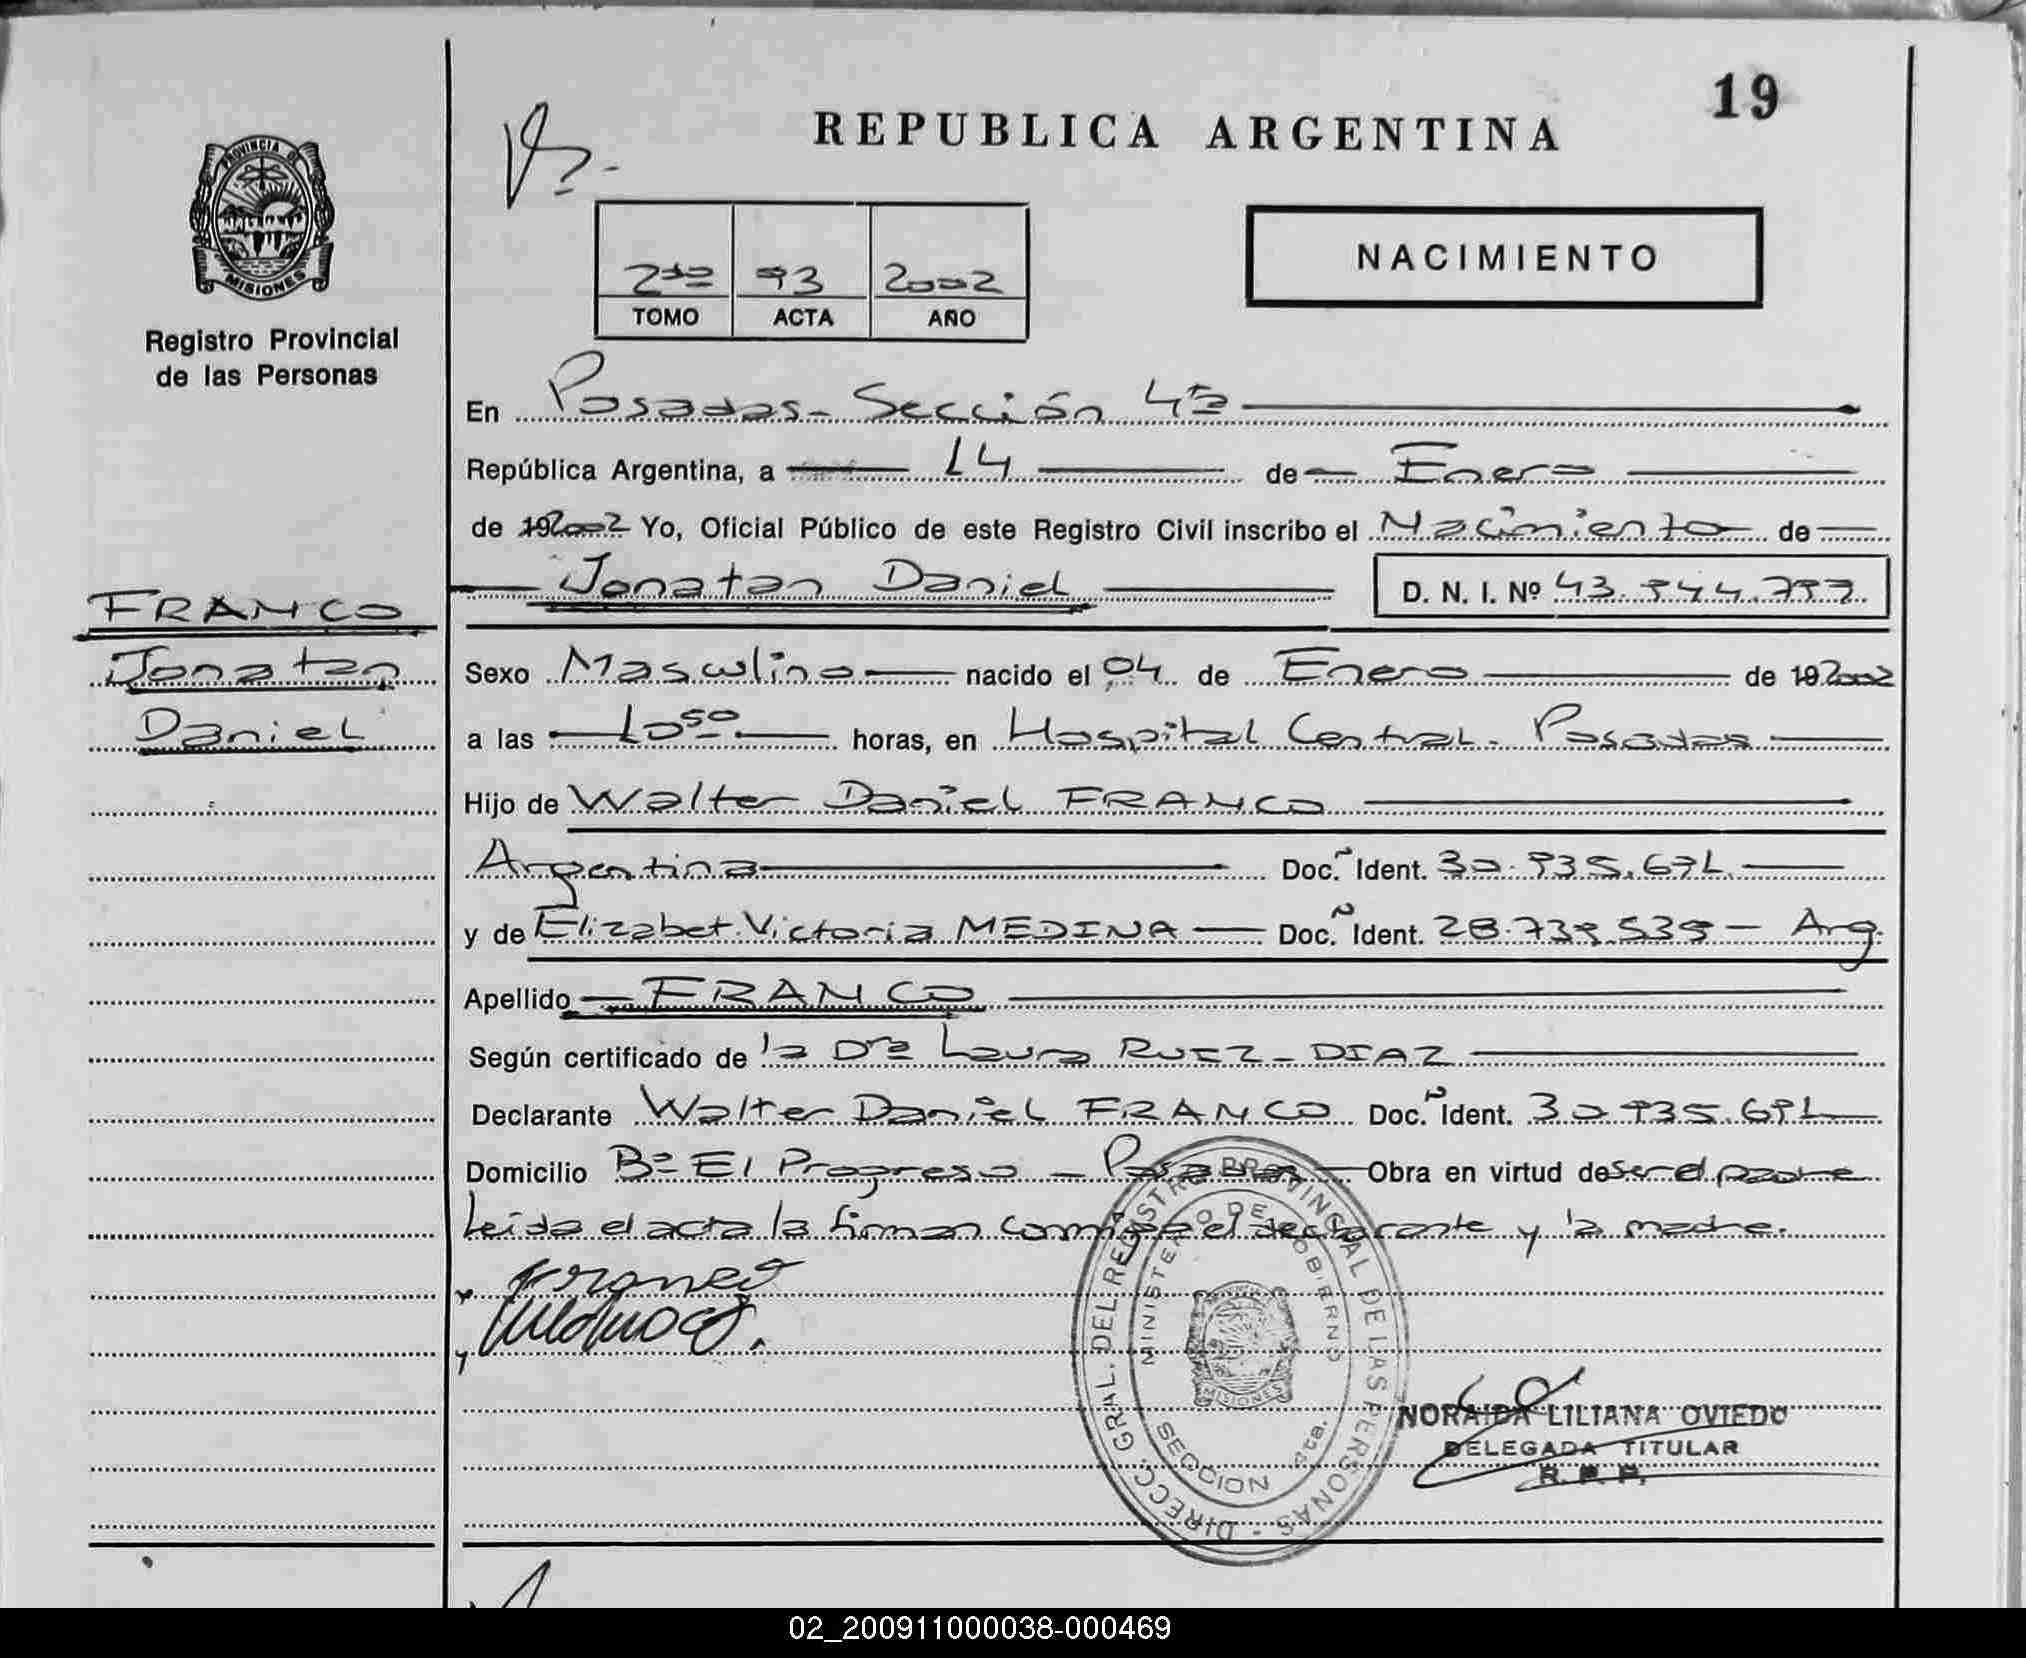 19
REPUBLICA ARGENTINA
PROVINCIA DE
MISIONES
Registro Provincial
de las Personas
2do 93 2002
TOMO ACTA AÑO
NACIMIENTO
En Posadas - Sección 4ta
República Argentina, a 14 de Enero
de 192002 Yo, Oficial Público de este Registro Civil inscribo el Nacimiento de
Jonatan Daniel D. N. I. Nº
FRANCO
Jonatan
Daniel
Sexo Masculino nacido el 04 de Enero de 192002
a las 10 50 horas, en Hospital Central - Posadas
Hijo de Walter Daniel FRANCO
Argentina Doc. Ident.
y de Elizabet Victoria MEDINA Doc. Ident. 28.739.539 - Arg.
Apellido FRANCO
Según certificado de la Dra Laura RUIZ - DIAZ
Declarante Walter Daniel FRANCO Doc. Ident.
Domicilio Bº El Progreso - Posadas Obra en virtud de ser el padre
Leida el acta la firman conmigo el declarante y la madre.
DIRECC. GRAL. DEL REGISTRO PROVINCIAL DE LAS PERSONAS -
MINISTERIO DE GOBIERNO
MISIONES
SECCION 4ta.
NORAIDA LILIANA OVIEDO
DELEGADA TITULAR
R. P. P.
02_200911000038-000469